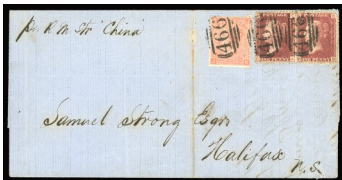 pr R M Str "China"
466 466 466
Samuel Strong Esqr
Halifax
N.S.